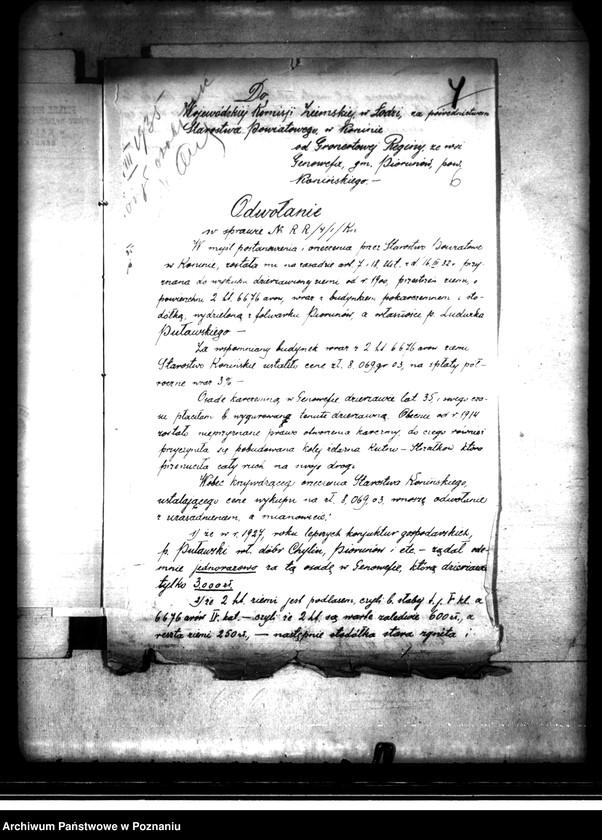 4
Do
Wojewódzkiej Komisji Ziemskiej, w Łodzi, za pośrednictwem
Starostwa Powiatowego, w Koninie
od Gronertowej Reginy, ze wsi
Genowefie, gm. Piorunów, pow.
Konińskiego. —
6
Odwołanie
w sprawie № R R/4/1/Kn
W myśl postanowienia i orzeczenia przez Starostwo Powiatowe
w Koninie, została mi na zasadzie art. 7 i 18, Ust. z d. 16.III 32 r. przy-
znana do wykupu dzierżawiona ziemi od r. 1900, przestrzeń ziemi, o
powierzchni 2 ht. 6676 arów, wraz z budynkiem pokarczemnem i sto-
dółką, wydzieloną z folwarku Piorunów, a własności p. Ludwika
Puławskiego —
Za wspomniany budynek wraz z 2 ht. 6676 arów ziemi
Starostwo Konińskie ustaliło cenę zł. 8,069 gr 03, na spłaty pół-
roczne wraz 3% —
Osadę karczemną, w Genowefie dzierżawię lat 35, i swego cza-
su płaciłam b. wygórowaną tenutę dzierżawną. Obecnie od r. 1914
zostało nieprzyznane prawo otworzenia karczmy, do czego również
przyczyniła się pobudowana kolej żelazna Kutno – Strzałków która
przerzuciła cały ruch na swoją drogę
Wobec krzywdzącego orzeczenia Starostwa Konińskiego,
ustalającego cenę wykupu na zł. 8,069.03, wnoszę odwołanie
z uzasadnieniem, a mianowicie:
1) że w r. 1927, roku lepszych konjuktur gospodarskich,
p. Puławski wł. dóbr Chylin, Piorunów i etc. — żądał ode-
mnie jednorazowo za tą osadę w Genowefie, którą dzierżawię
tylko 3.000 zł
2) że 2 ht. ziemi jest podlasem, czyli b. słaby t. j. V kl. a
6676 arów IV. kat. — czyli że 2 ht. są warte zaledwie 600 zł, a
reszta ziemi 250 zł, — następnie stodółka stara zgniła i
Archiwum Państwowe w Poznaniu